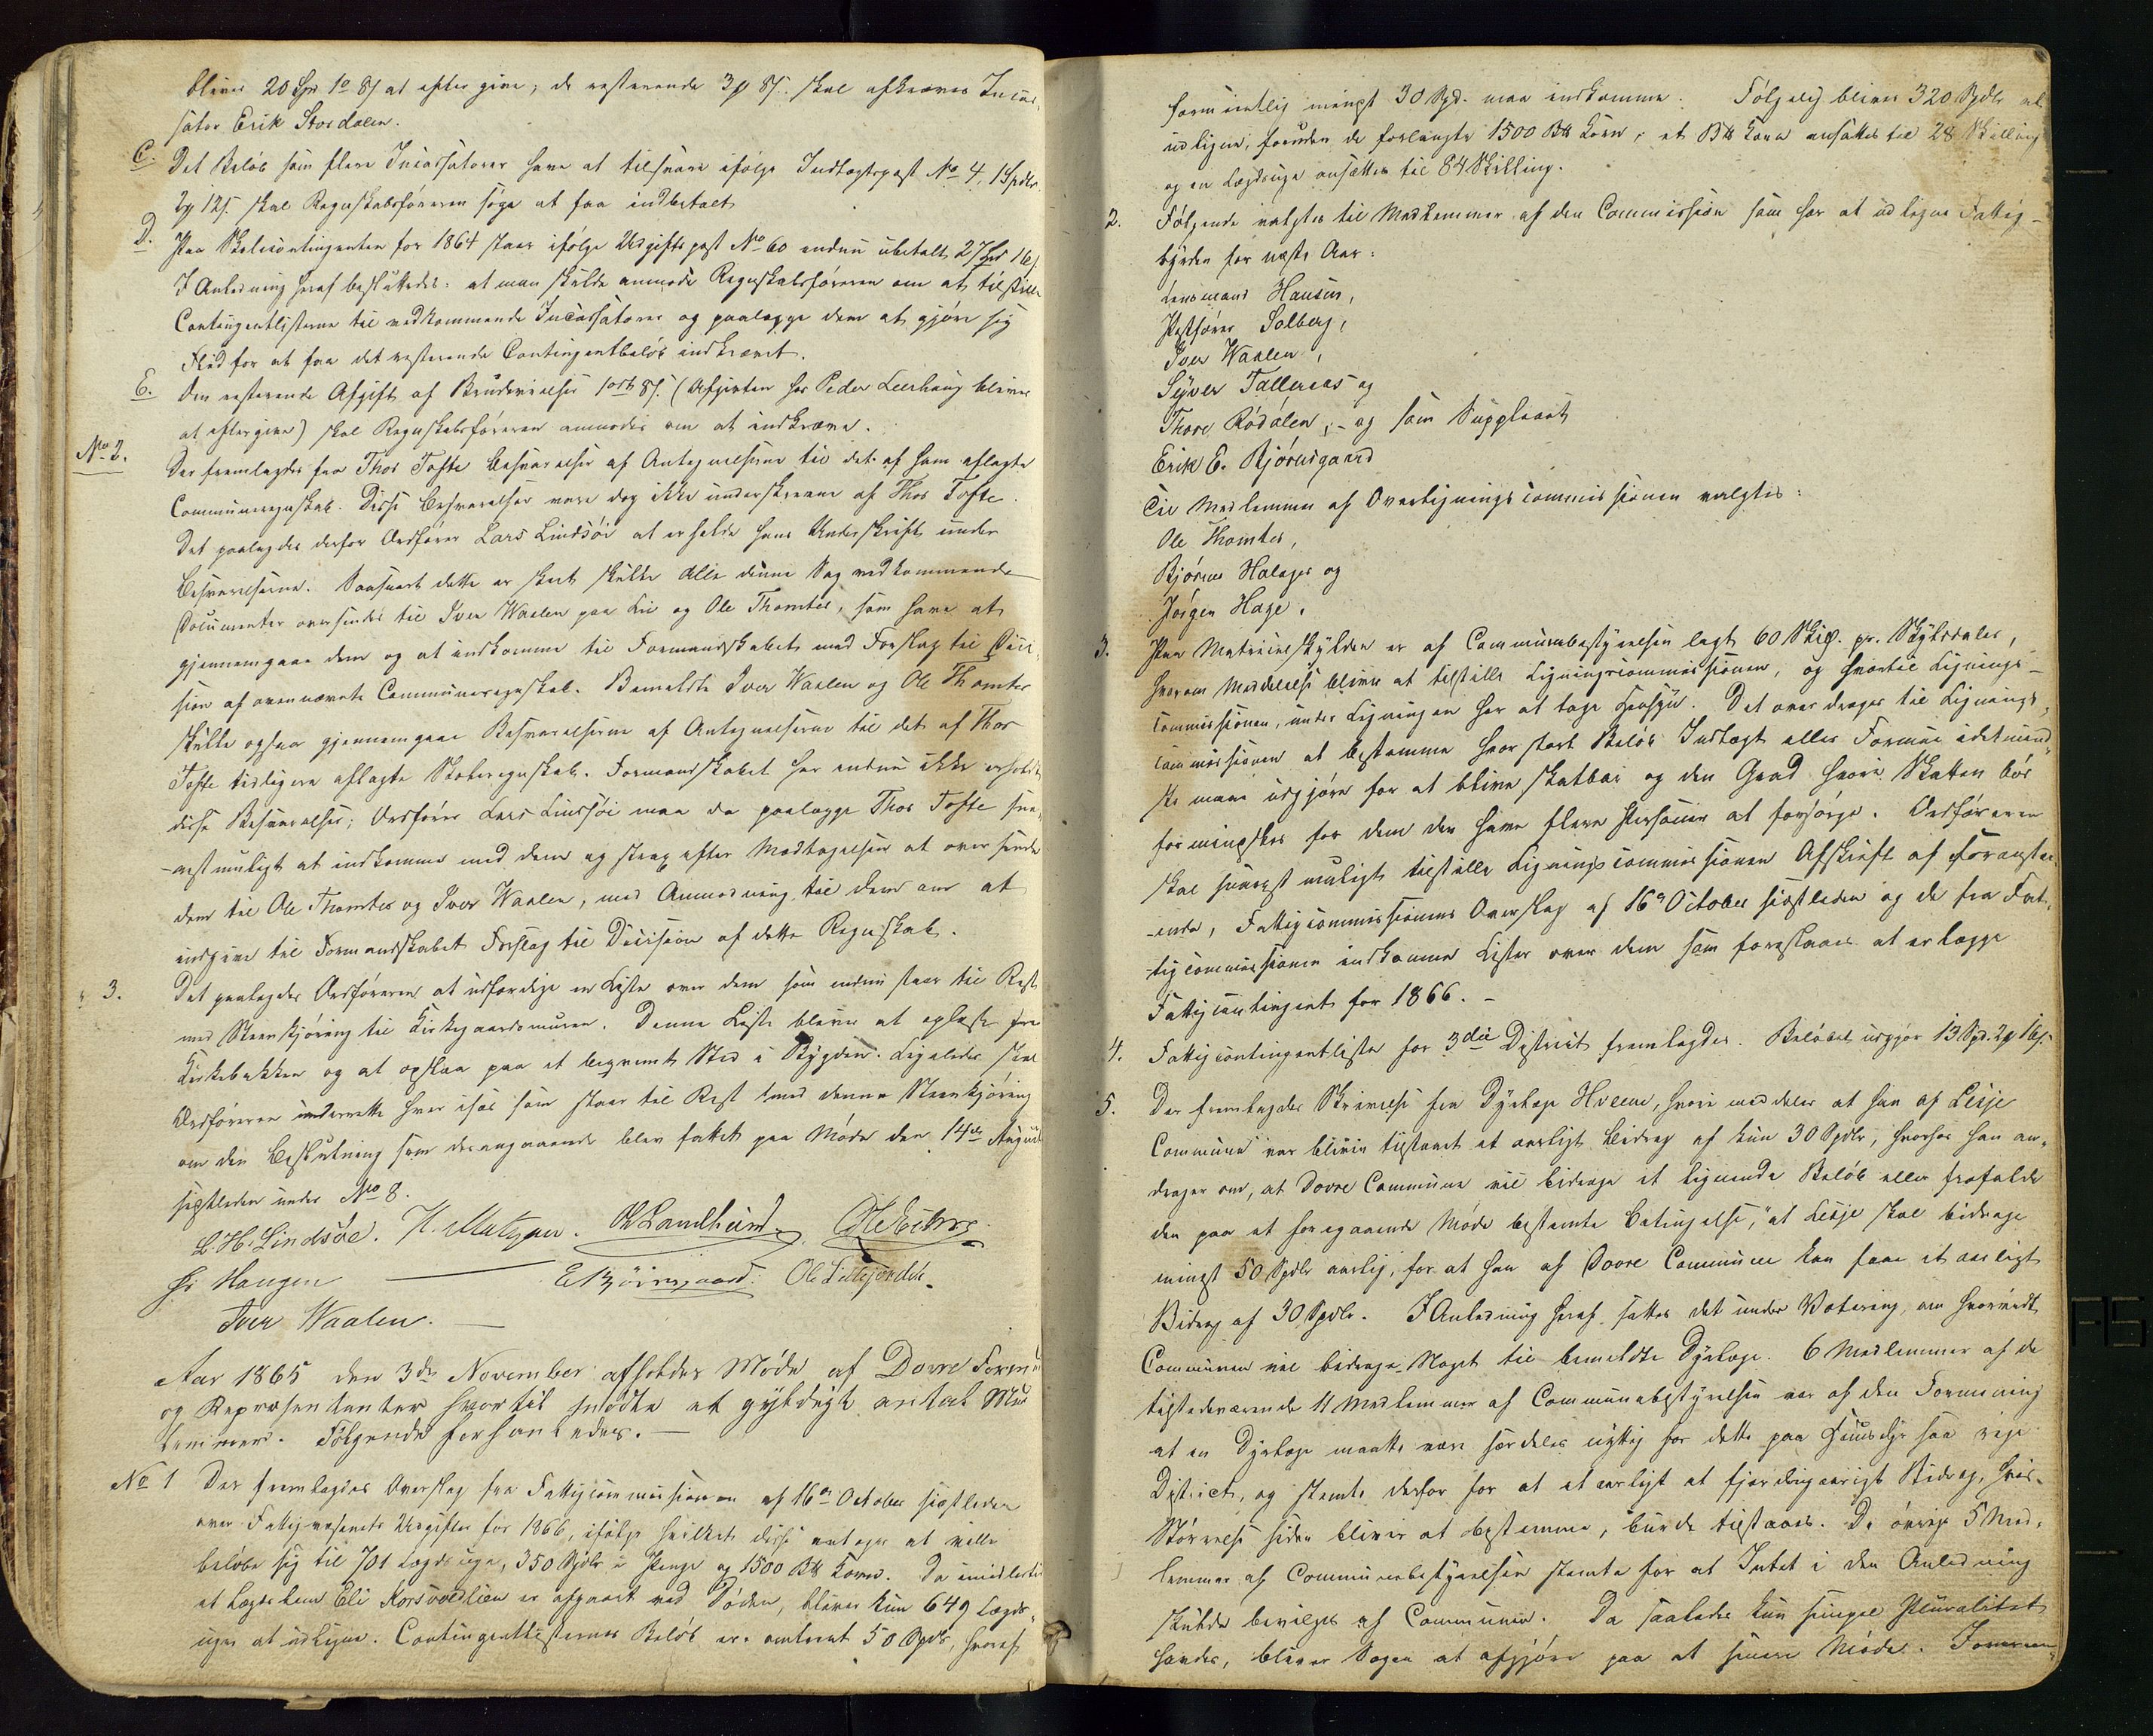 bliver 20 Spd 1 o 8 s at eftergive; de resterende 3 o 8 s. skal afkræves Incas-
sator Erik Stordalen.
C. Det Beløb som flere Incassatorer have at tilsvare ifølge Indtægtspost No 4, 1 Spdlr.
2 o 12 s. skal Regnskabsføreren søge at faa indbetalt
D. Paa Skolecontingenten for 1864 staar ifølge Udgiftspost No 60 endnu ubetalt 27 Spd 16 s.
I Anledning heraf besluttedes: at man skulde anmode Regnskabsføreren om at tilstille
Contingentlisterne til vedkommende Incassatorer og paalægge dem at gjøre sig
Flid for at faa det resterende Contingentbeløb indkrævet.
E. Den resterende Afgift af Brændevinelser 1 ort 8 s. (Afgivten hos Peder Leerhaug bliver
at eftergive) skal Regnskabsføreren anmodes om at indkræve.
No 2. Der fremlagdes fra Thor Tofte Besvarelser af Antegnelserne til det af ham aflagte
Communeregnskab. Disse Besvarelser vare dog ikke underskrevne af Thor Tofte.
Det paalagdes derfor Ordfører Lars Lindsøe at erholde hans Underskrift under
Besvarelserne. Saasnart dette er skeet skulle alle denne Sag vedkommende
Documenter oversendes til Iver Waalen paa Lie og Ole Thomter, som have at
gjennemgaae dem og at indkomme til Formandskabet med Forslag til Deci-
sion af ovennævnte Communeregnskab. Bemeldte Iver Waalen og Ole Thomter
skulle ogsaa gjennemgaae Besvarelserne af Antegnelserne til det af Thor
Tofte tidligere aflagte Skoleregnskab. Formandskabet har endnu ikke erholdt
disse Besvarelser; Ordfører Lars Lindsøe maa da paalægge Thor Tofte sna-
rest muligt at indkomme med dem og strax efter Modtagelsen at oversende
dem til Ole Thomter og Iver Waalen, med Anmodning til dem om at
indgive til Formandskabet Forslag til Decision af dette Regnskab.
" 3. Det paalagdes Ordføreren at udfærdige en Liste over dem som endnu staar til Rest
med Steenkjøring til Kirkegaardsmuren. Denne Liste bliver at oplæse fra
Kirkebakken og at opslaa paa et beqvemt Sted i Bygden. Ligeledes skal
Ordføreren underrette hver især som staar til Rest med denne Steenkjøring
om den Beslutning som derangaaende blev fattet paa Møde den 14de August
sidstleden under No 8.
L. H. Lindsøe. H. Matzau. O. Landheim
Hs Haugen E. Bjørnsgaard. Ole Lillejordet.
Iver Waalen.
Aar 1865 den 3de November afholdes Møde af Dovre Form.
og Repræsentanter hvortil mødte et gyldigt antal Med
lemmer. Følgende forhandledes.
No 1 Der fremlagdes Overslag fra Fattigcommissionen af 16de October sidstleden
over Fattigvæsenets Udgifter for 1866, ifølge hvilket disse antages at ville
beløbe sig til 701 Lægduger, 350 Spdlr i Penge og 1500 B℔ Korn. Da imidlertid
et Lægdslem Eli Korsvoldlien er afgaaet ved Døden, bliver kun 649 Lægds-
uger at udligne. Contingentlisternes Beløb er omtrent 50 Spdlr, hvoraf
formentlig mingst 30 Spd. maa indkomme. Følgelig bliver 320 Spdlr at
udligne, foruden de forlangte 1500 B℔ Korn; et B℔ Korn ansættes til 28 Skilling
og en Lægdsuge ansættes til 84 Skilling.
2. Følgende valgtes til Medlemmer af den Commission som har at udligne Fattig-
byrden for næste Aar:
Lensmand Hansen,
Postfører Solberg,
Iver Waalen,
Syver Talleraas og
Thore Rødølen; - og som Suppleant
Erik E. Bjørnsgaard
Til Medlemmer af Overligningscommissionen valgtes:
Ole Thomter,
Bjørner Halager og
Jørgen Hage.
3. Paa Matriculskylden er af Communebestyrelsen lagt 60 Skill. pr. Skylddaler,
hvorom Meddelelse bliver at tilstille Ligningscommissionen, og hvortil Lignings-
commissionen, under Ligningen har at tage Hensyn. Det overdrages til Lignings-
commissionen at bestemme hvor stort Beløb Indtægt eller Formue idetmind-
ste maa udgjøre for at blive skatbar og den Grad hvori Skatten bør
formindskes for dem der have flere Personer at forsørge. Ordføreren
skal snarest muligt tilstille Ligningscommissionen Afskrift af Foranstaa-
ende, Fattigcommissionens Overslag af 16de October sidstleden og de fra Fat-
tigcommissionen indkomne Lister over dem som foreslaaes at erlægge
Fattigcontingent for 1866. -
4. Fattigcontingentliste for 3die District fremlagdes. Beløbet udgjør 13 Spd. 2 o 16 s.
5. Der fremlagdes Skrivelse fra Dyrlæge Hveem, hvori meddeles at han af Lesje
Commune var bleven tilstaaet et aarligt Bidrag af kun 30 Spdlr, hvorfor han an-
drager om, at Dovre Commune vil bidrage et lignende Beløb eller frafalde
den paa et foregaaende Møde bestemte Betingelse, "at Lesje skal bidrage
mingst 50 Spdlr aarlig, for at han af Dovre Commune kan faae et aarligt
Bidrag af 30 Spdlr. I Anledning heraf sattes det under Votering, om hvorvidt
Communen vil bidrage Noget til bemeldte Dyrlæge. 6 Medlemmer af de
tilstedeværende 11 Medlemmer af Communebestyrelsen var af den Formening
at en Dyrlæge maatte være særdeles nyttig for dette paa Huusdyr saa rige
District, og stemte derfor for at et aarligt et fjerdingaarigt Bidrag, hvis
Størrelse siden bliver at bestemme, burde tilstaaes. De øvrige 5 Med-
lemmer af Communebestyrelsen stemte for at Intet i den Anledning
skulde bevilges af Communen. Da saaledes kun simpel Pluralitet
havdes, bliver Sagen at afgjøre paa et senere Møde.